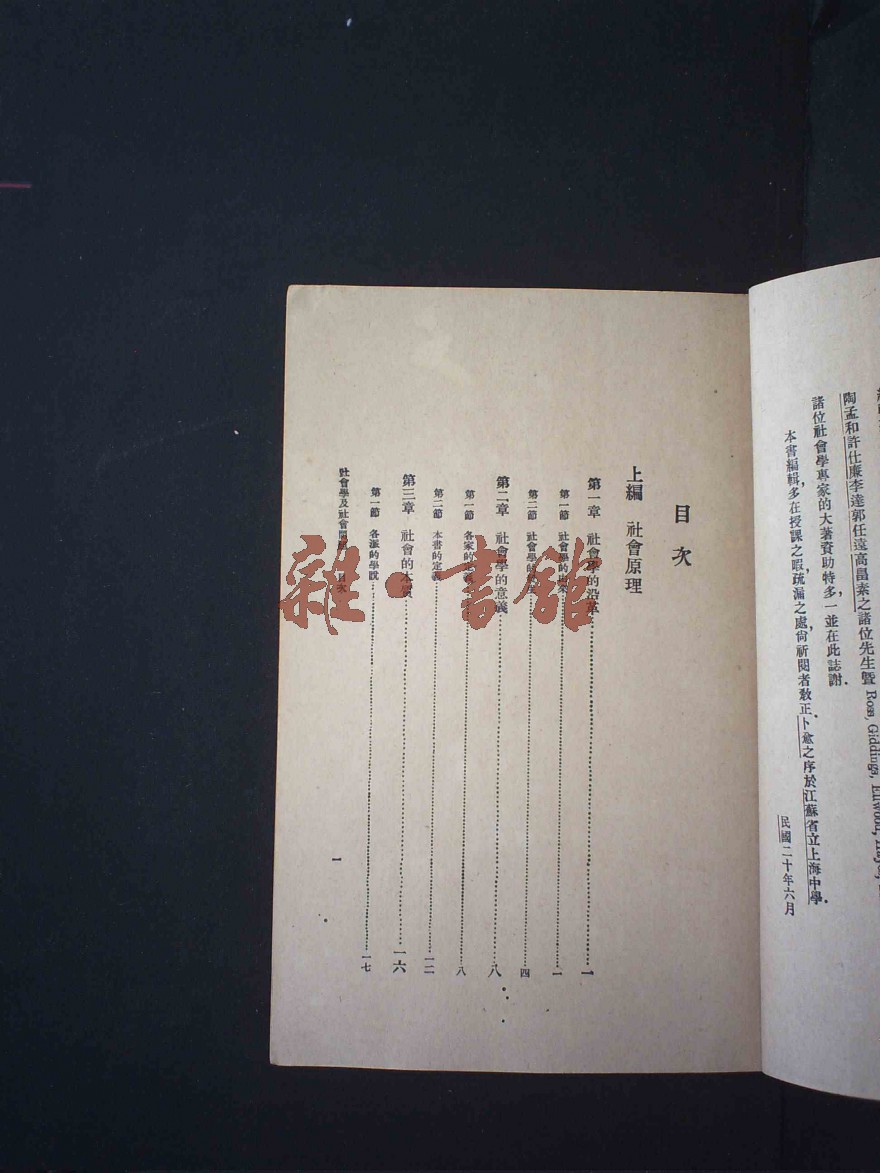 陶孟和許仕廉李達郭任遠高畠素之諸位先生暨 Ross, Giddings, Ellwood,
諸位社會學專家的大著資助特多，一並在此誌謝．
本書編輯，多在授課之暇，疏漏之處，尙祈閱者敎正．卜愈之序於江蘇省立上海中學．
民國二十年六月
目次
上編 社會原理
第一章 社會學的沿革……一
第一節 社會學的由來……一
第二節 社會學的……四
第二章 社會學的意義……八
第一節 各家的定義……八
第二節 本書的定義……一二
第三章 社會的本質……一六
第一節 各派的學說……一七
社會學及社會問題 目次
一
雜·書館